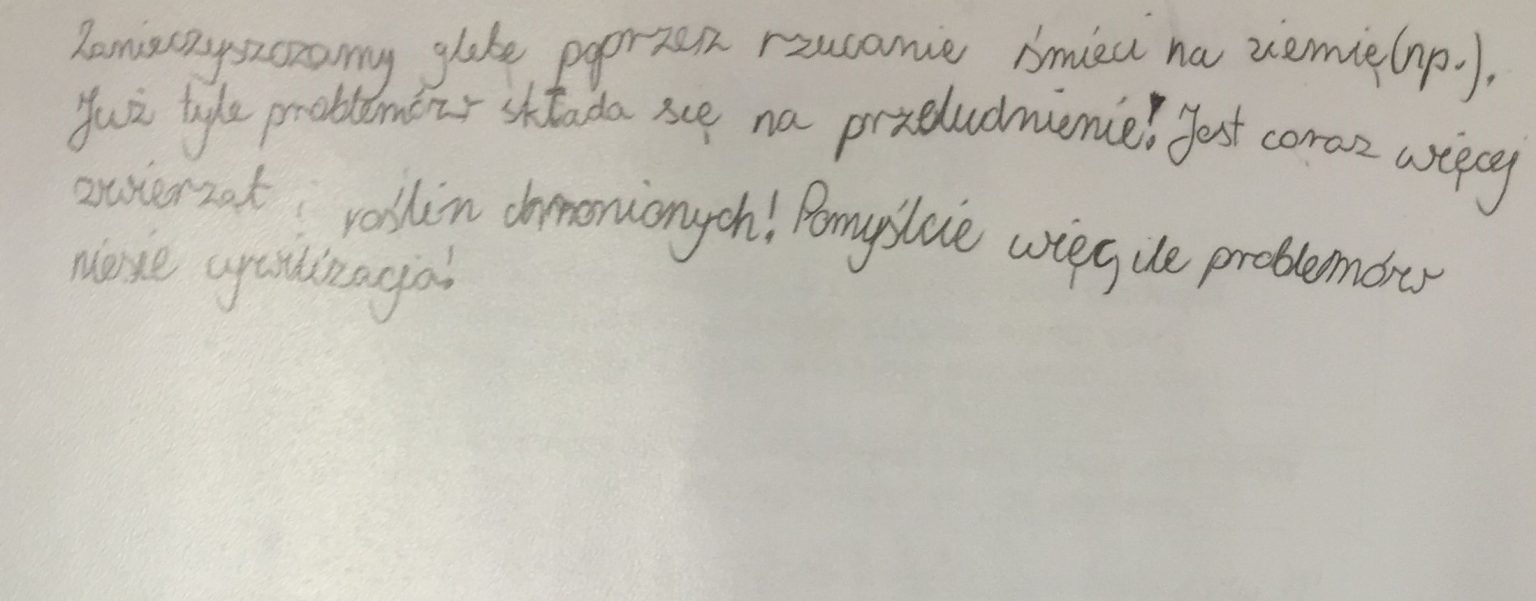 Zanieczyszczamy glebę poprzez rzucanie śmieci na ziemię (np.).
Już tyle problemów składa się na przeludnienie! Jest coraz więcej
zwierząt i roślin chronionych! Pomyślcie więc, ile problemów
niesie cywilizacja!